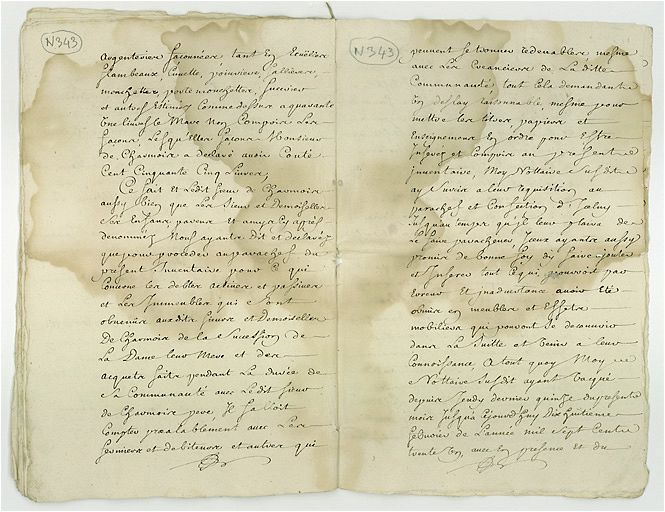 N343
argenteries façonnées tant En Ecuelles
flambeaux Cuvette, poivriere, sallieres,
mouchettes porte mouchettes, sucrier
et autres Estimez Comme dessus a quarante
une livres le Marc Non Compris Les
façons, Lesquelles façons Monsieur
de Charmoise a declaré avoir Couté
Cent Cinquante Cinq Livres,
Ce fait Et Ledit Sieur de Charmoise
aussy bien que Les Sieur et Demoiselles
Ses Enfans parens et amys cy apres
denommez Nous ayants Dit et declarez
que pour proceder au parachef du
present Inventaire pour Ce qui
Concerne les debtes actives et passives
et Les Immeubles qui sont
obvenus auxdits sieurs et Demoiselles
De Charmoise de la Succession de
La Dame leur Mere et des
acquets faits pendant La durée de
Sa Communauté avec Ledit sieur
de Charmoise pere, Il falloit
Compter prealablement avec Les
fermiers et debiteurs et autres qui
N343
peuvent se trouver redevables mesme
avec Les Creanciers de La ditte
Communauté, tout Cela demandant
Un dellay raisonnable, mesme pour
mettre les titres papiers et
Enseignemens En ordre pour Estre
Inserez et Compris au present
Inventaire, Moy Nottaire Susdit
ay Surcis a leur requisition au
parachef et Confection d'Iceluy
jusqu'au temps qu'il leur plaira de
Le faire parachever, Iceux ayants aussy
promis de bonne foy d'y faire ajouter
et Inserer tout Ce qui pourroit par
Erreur Et inadvertance avoir été
obmis en meubles et Effets
mobiliers qui pourront se decouvrir
dans La Suitte et Venir a leur
Connoissance, A tout quoy Moy
Nottaire Susdit ayant Vacqué
depuis Jeudy dernier quinze du present
mois Jusqu'a Ejourd'huy Dix huitieme
fedvrier de L'année mil Sept Cents
trente Un avec En presence et du